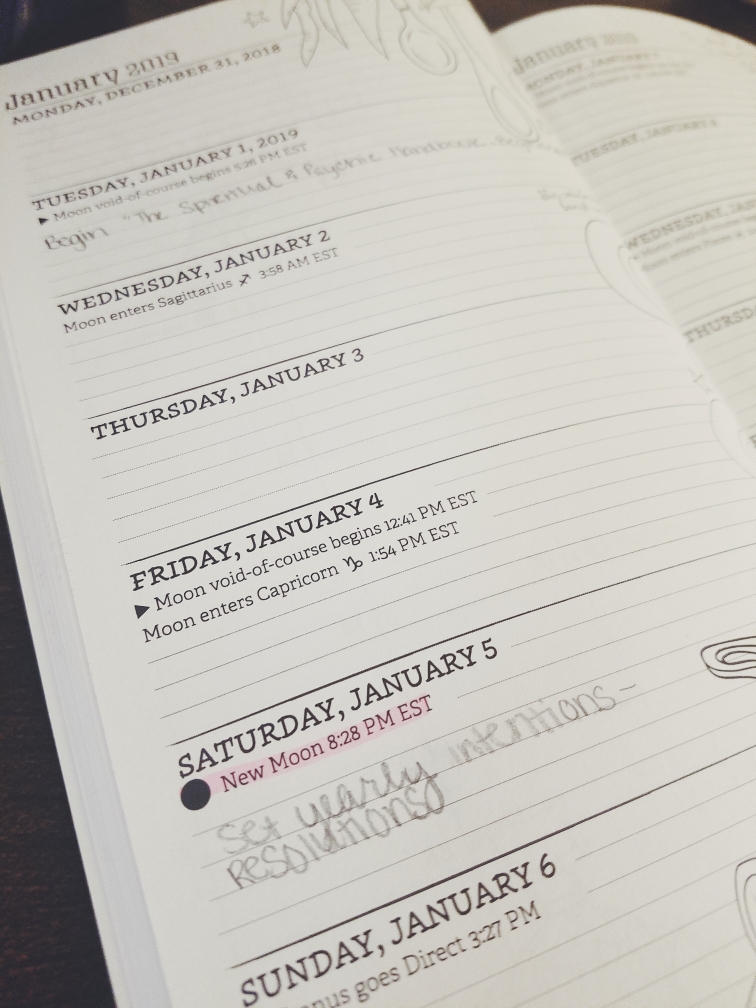 January 2019
MONDAY, DECEMBER 31, 2018
TUESDAY, JANUARY 1, 2019
▶ Moon void-of-course begins 5:26 PM EST
Begin "The Spiritual & Psychic Handbook
WEDNESDAY, JANUARY 2
Moon enters Sagittarius ♐ 3:58 AM EST
THURSDAY, JANUARY 3
FRIDAY, JANUARY 4
▶ Moon void-of-course begins 12:41 PM EST
Moon enters Capricorn ♑ 1:54 PM EST
SATURDAY, JANUARY 5
New Moon 8:28 PM EST
Set yearly intentions~
Resolutions
SUNDAY, JANUARY 6
anus goes Direct 3:27 PM
January
MONDAY, JANUARY
TUESDAY, JANUARY
WEDNESDAY, JAN
THURSDA